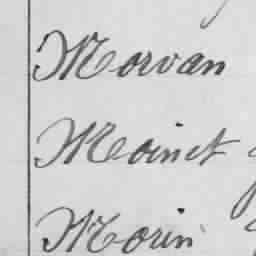 Morvan
Moinet
Morin